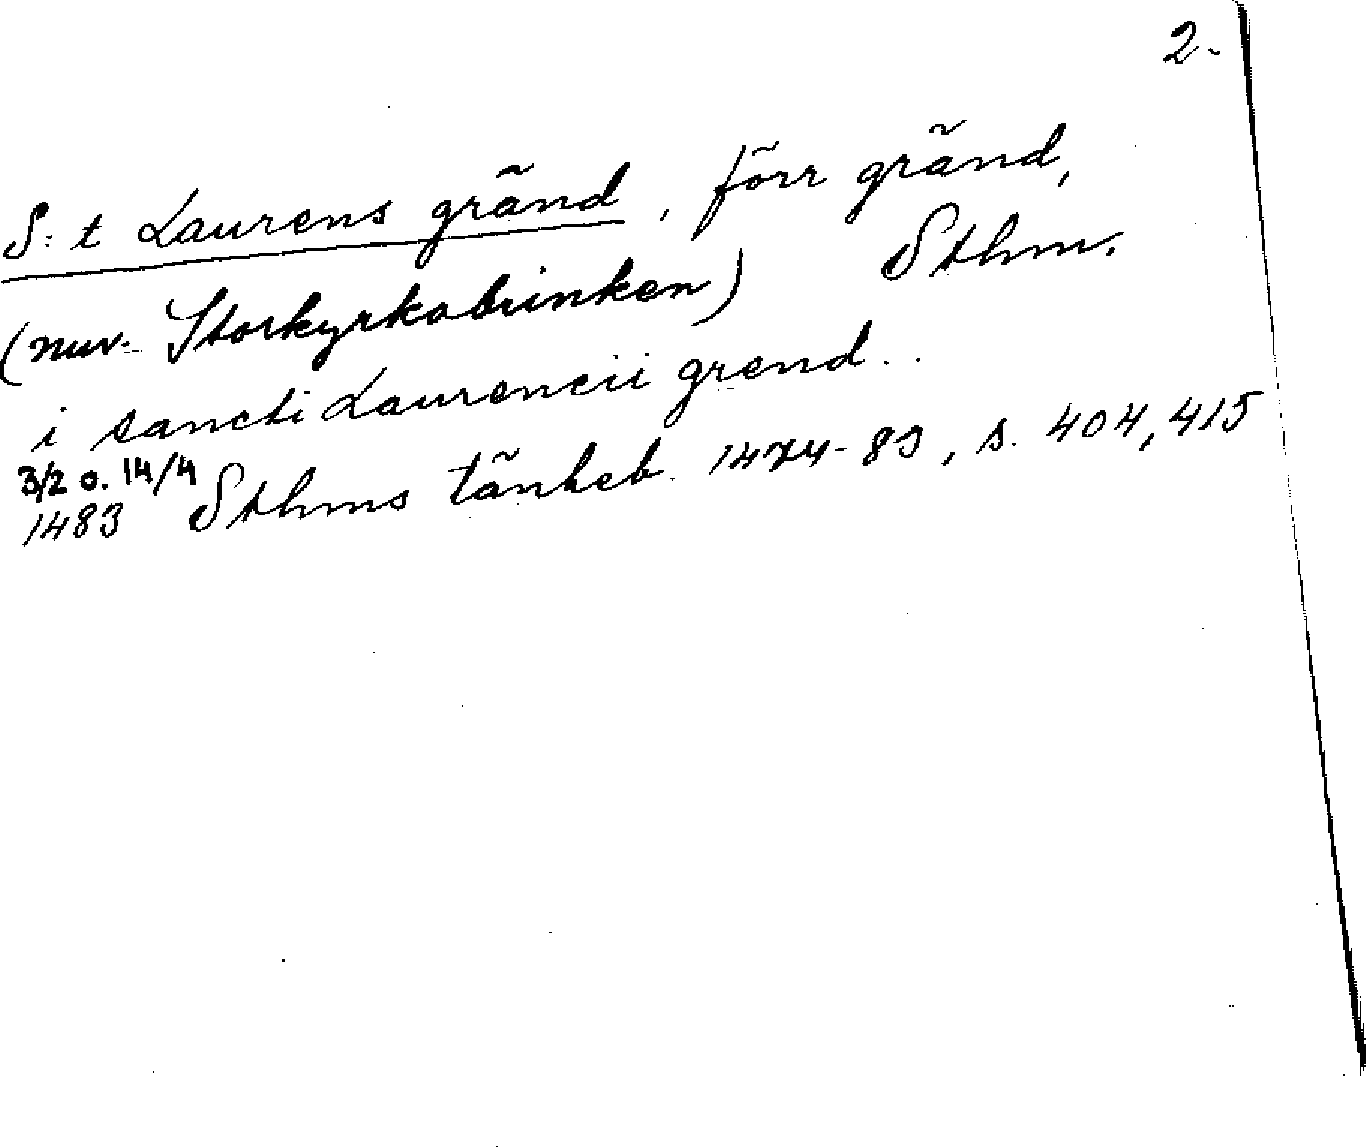 2.
S:t Laurens gränd, förr gränd,
(nuv. Storkyrkobrinken) Sthm.
i sancti Laurencii grend..
3/2 o. 14/4
1483 Sthms tänkeb. 1474-83, s. 404, 415